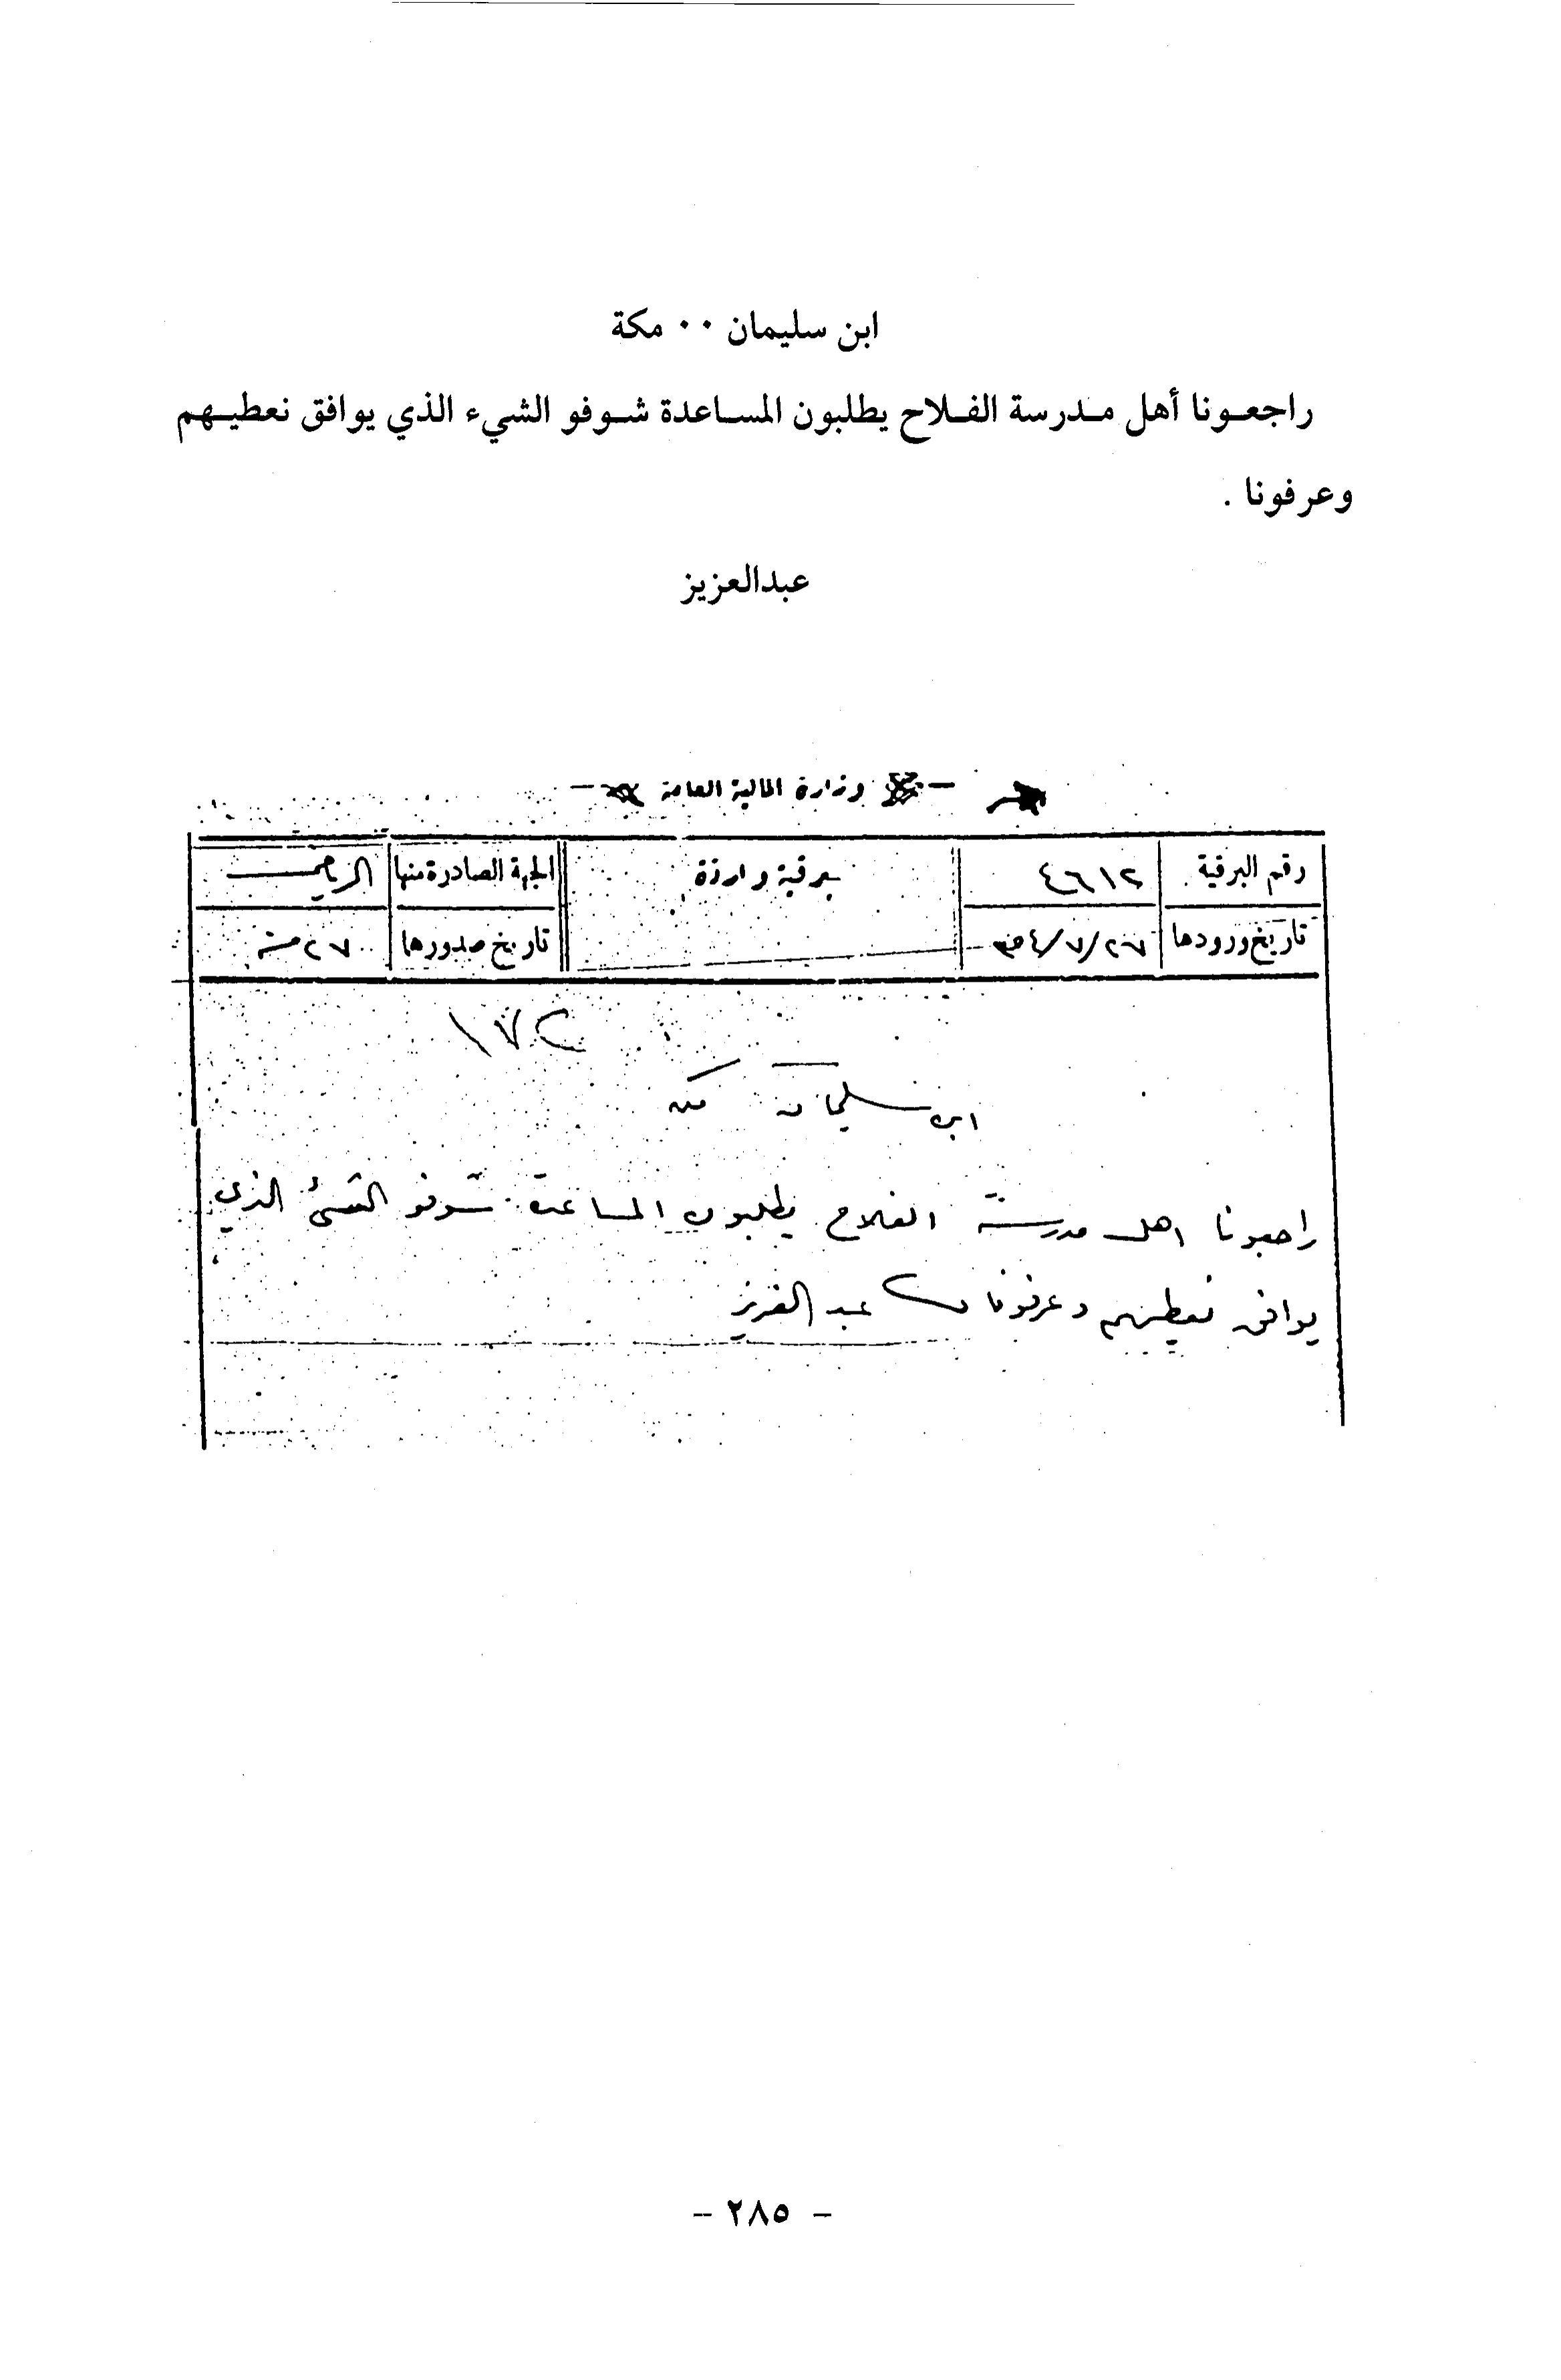 ابن سليمان ٠٠ مكة
راجعونا أهل مدرسة الفلاح يطلبون المساعدة شوفو الشيء الذي يوافق نعطيهم
وعرفونا .
عبدالعزيز
وزارة المالية العامة
رقم البرقية ٤٦١٢ برقية واردة الجهة الصادرة منها الرياض
تاريخ ورودها ٢٧/٧/ تاريخ صدورها ٢٧ منه
١٧٢
ابن سليمان مكه
راجعونا اهل مدرسة الفلاح يطلبون المساعدة شوفو الشئ الذي
يوافق نعطيهم وعرفونا عبد العزيز
- ٢٨٥ -